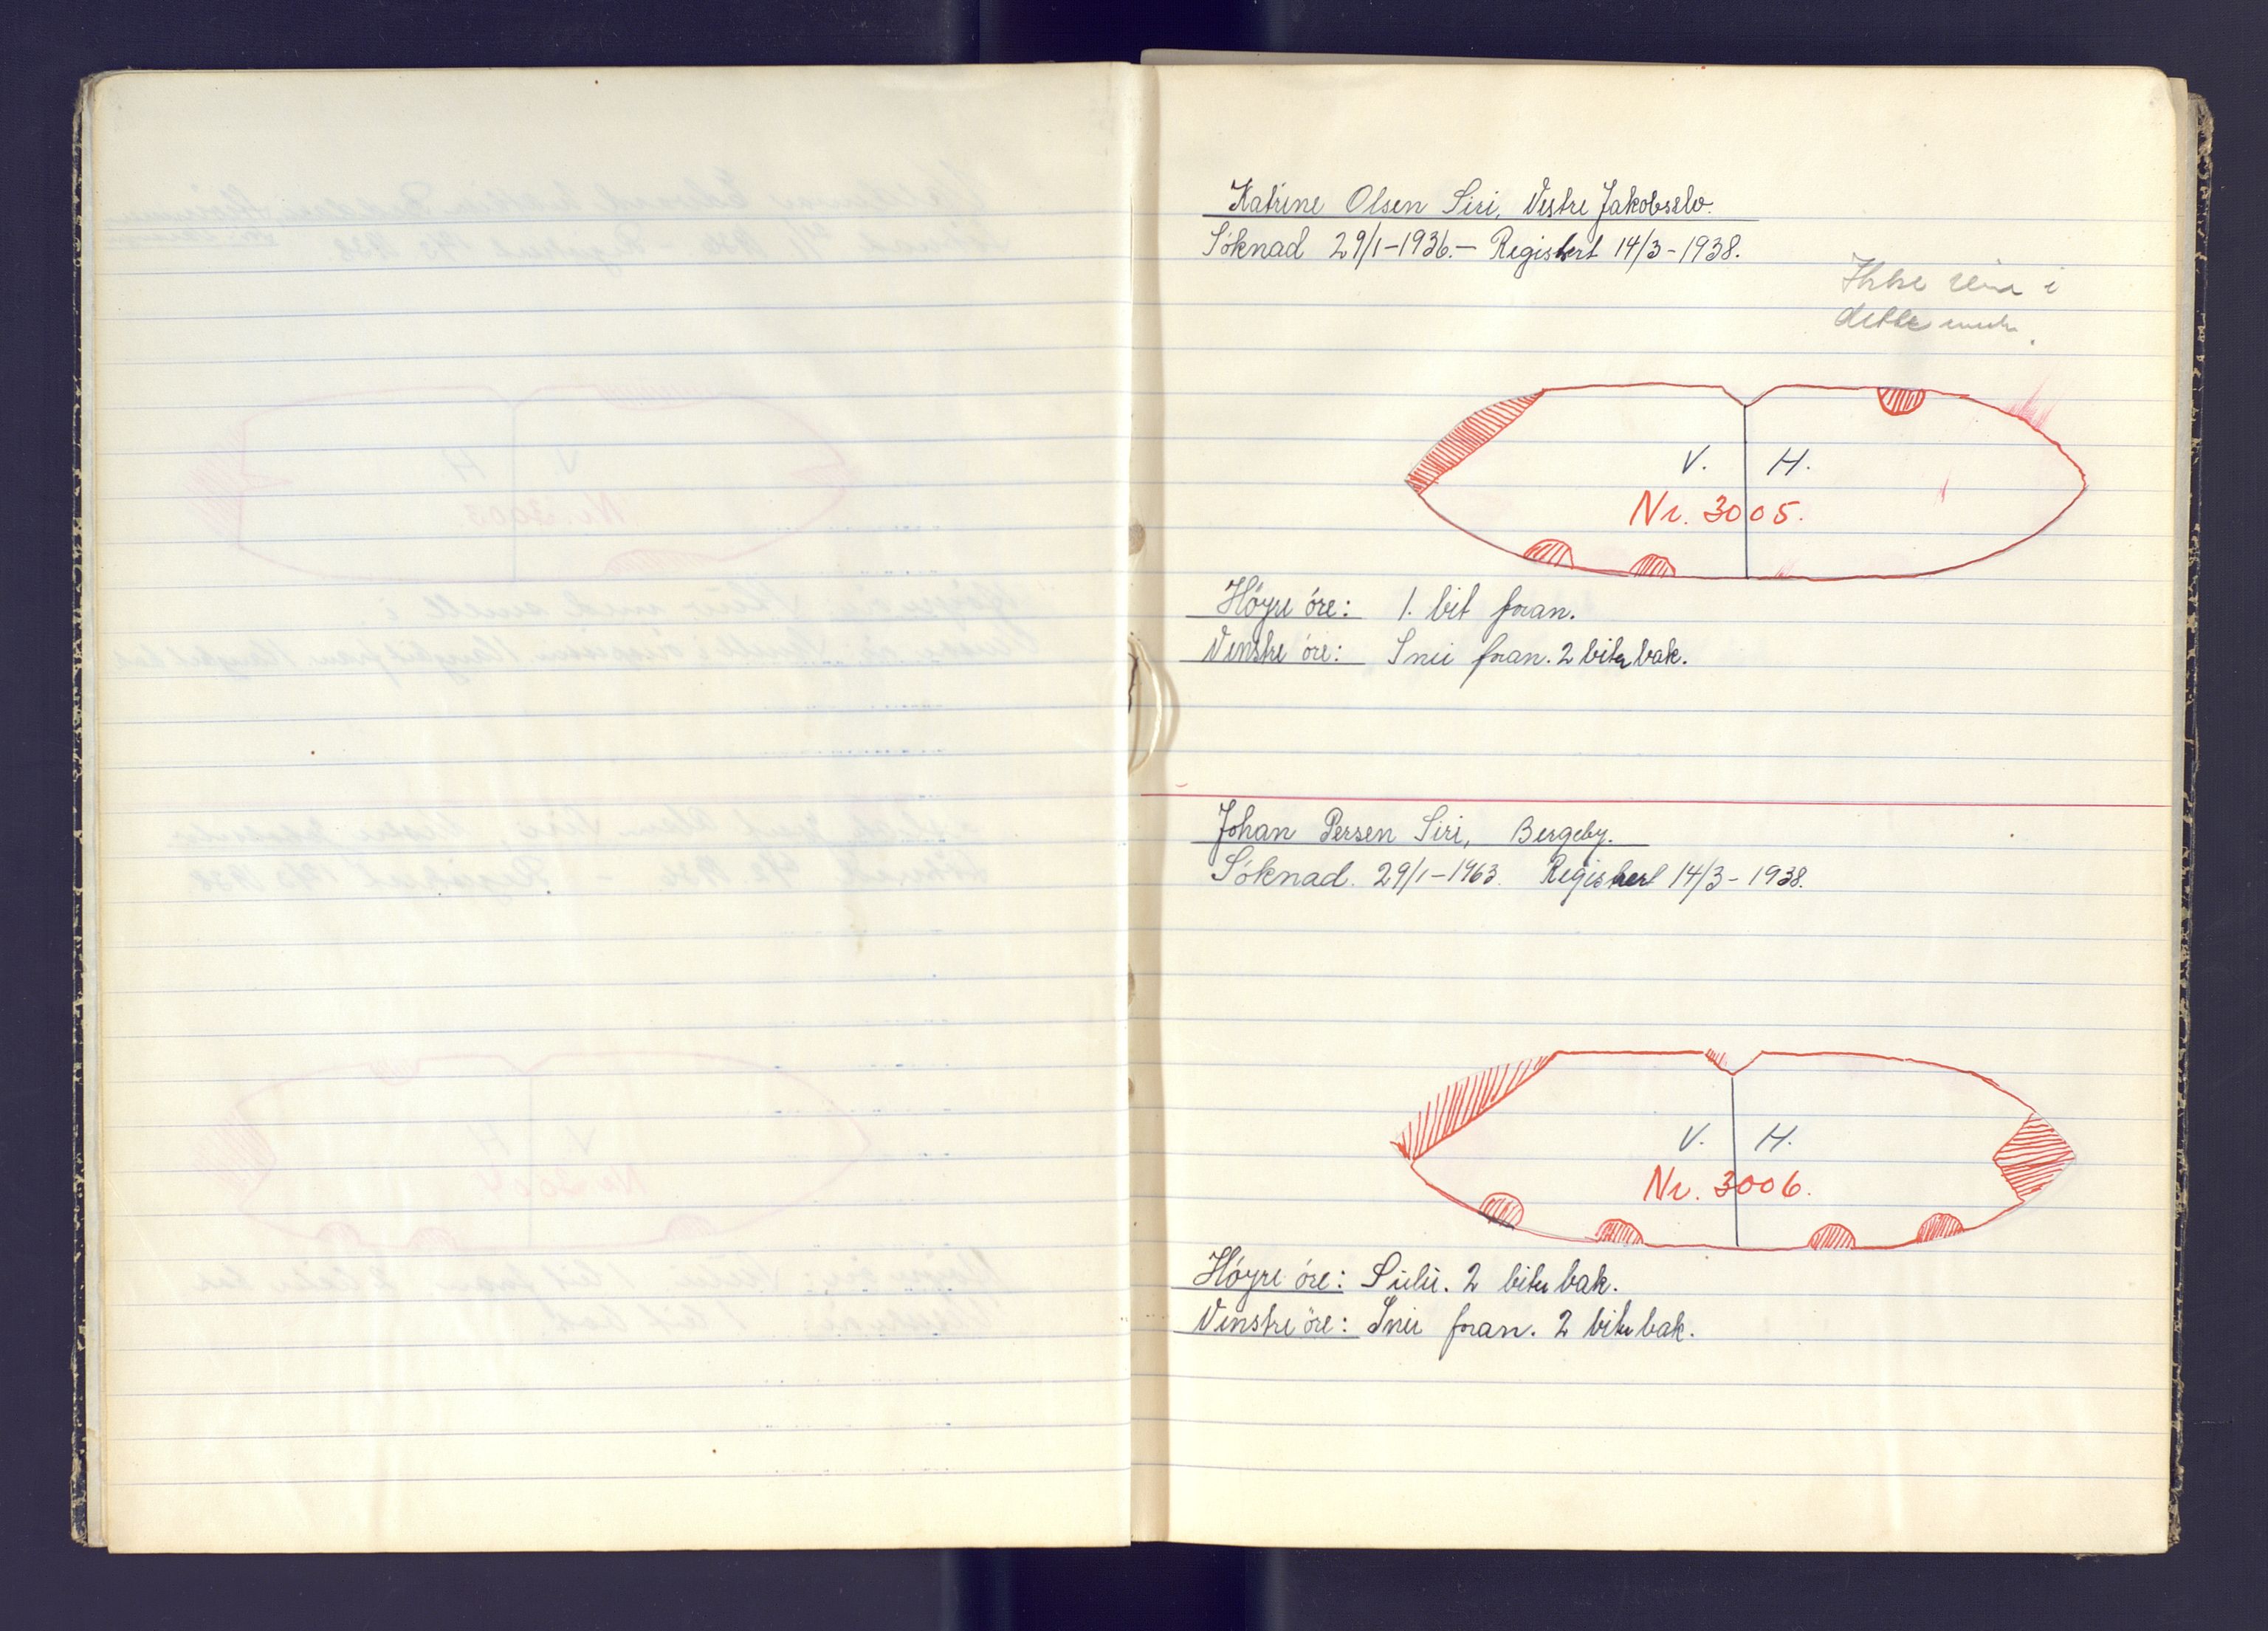 Katrine Olsen Siri, Vestre Jakobselv.
Söknad 29/1-1936.- Registert 14/3-1938.
Ikke rein i
dette
V. H.
Nr. 3005.
Höyre öre: 1. bit foran.
Venstre öre: Snei foran. 2 biter bak.
Johan Persen Siri, Bergeby.
Söknad. 29/1-1963. Registert 14/3-1938.
V. H.
Nr. 3006.
Höyre öre: 2 biter bak.
Venstre öre: Snei foran. 2 biter bak.